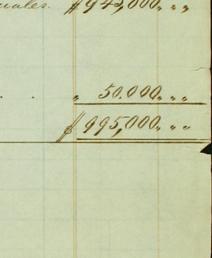 uales. $ 945,000 „ „
. . „ 50.000 „ „
$ 995,000 „ „